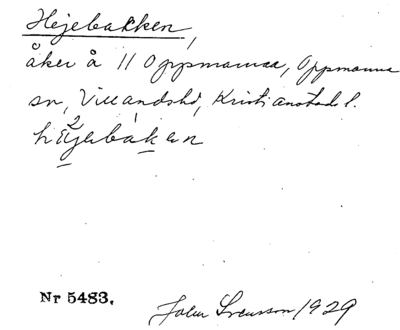 Hejebacken,
åker å 11 Oppmanna, Oppmanna
sn, Villandshd, Kristianstads l.
Nr 5483.
John Svensson 1929